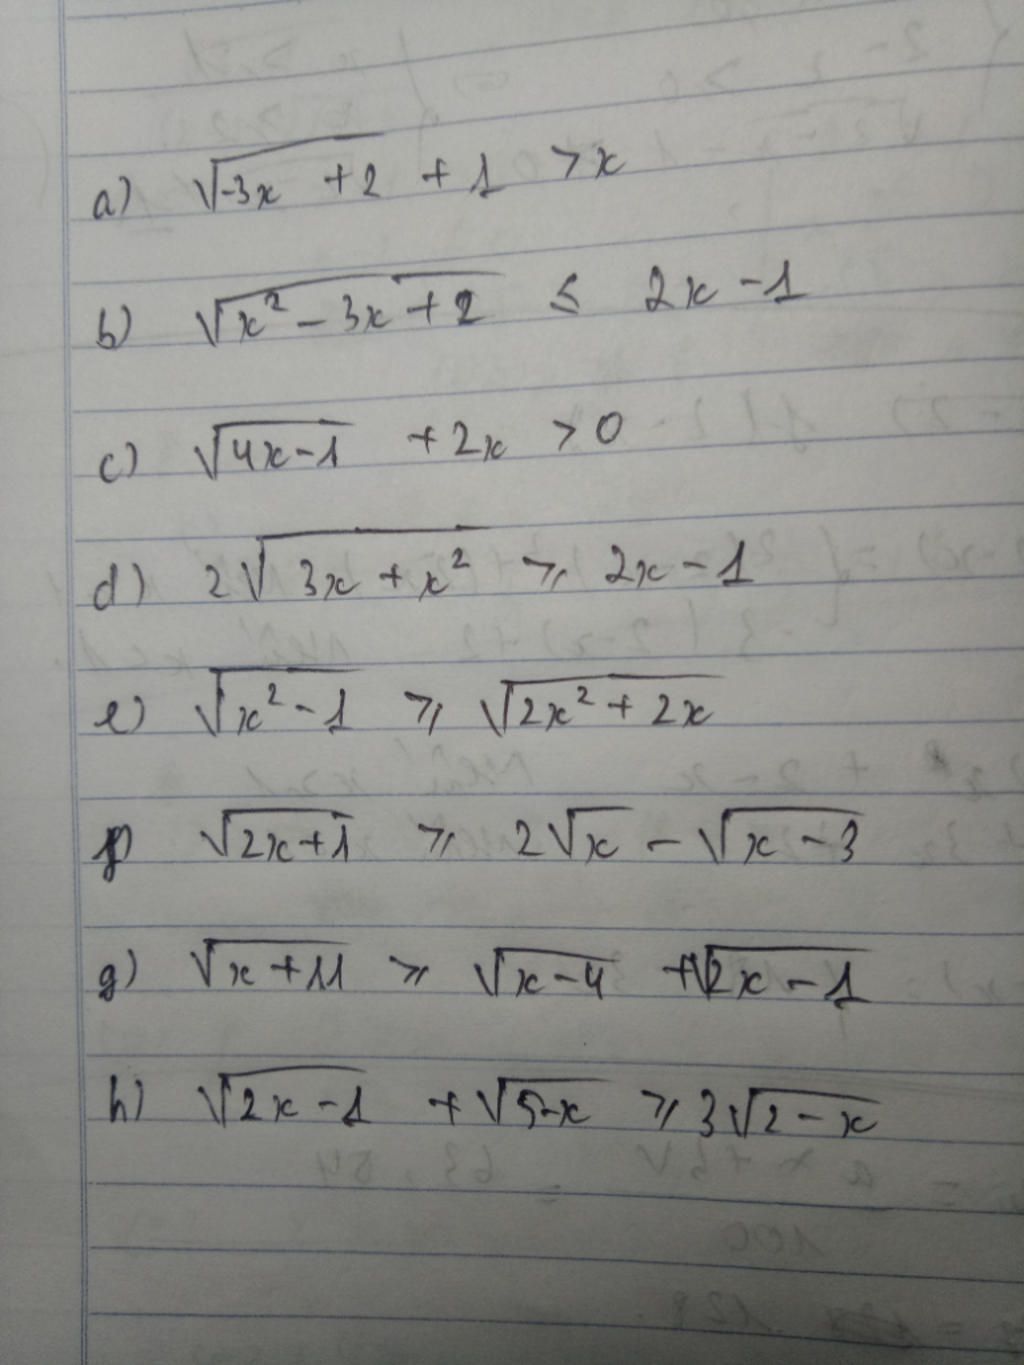 a) √(-3x + 2) + 1 > x
b) √(x² - 3x + 2) ≤ 2x - 1
c) √(4x - 1) + 2x > 0
d) 2√(3x + x²) ≥ 2x - 1
e) √(x² - 1) ≥ √(2x² + 2x)
f) √(2x + 1) ≥ 2√x - √(x - 3)
g) √(x + 11) ≥ √(x - 4) + √(2x - 1)
h) √(2x - 1) + √(5 - x) ≥ 3√(2 - x)